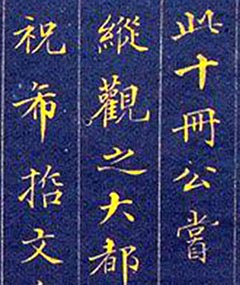 此十冊公嘗
縱觀之大都
祝希哲文